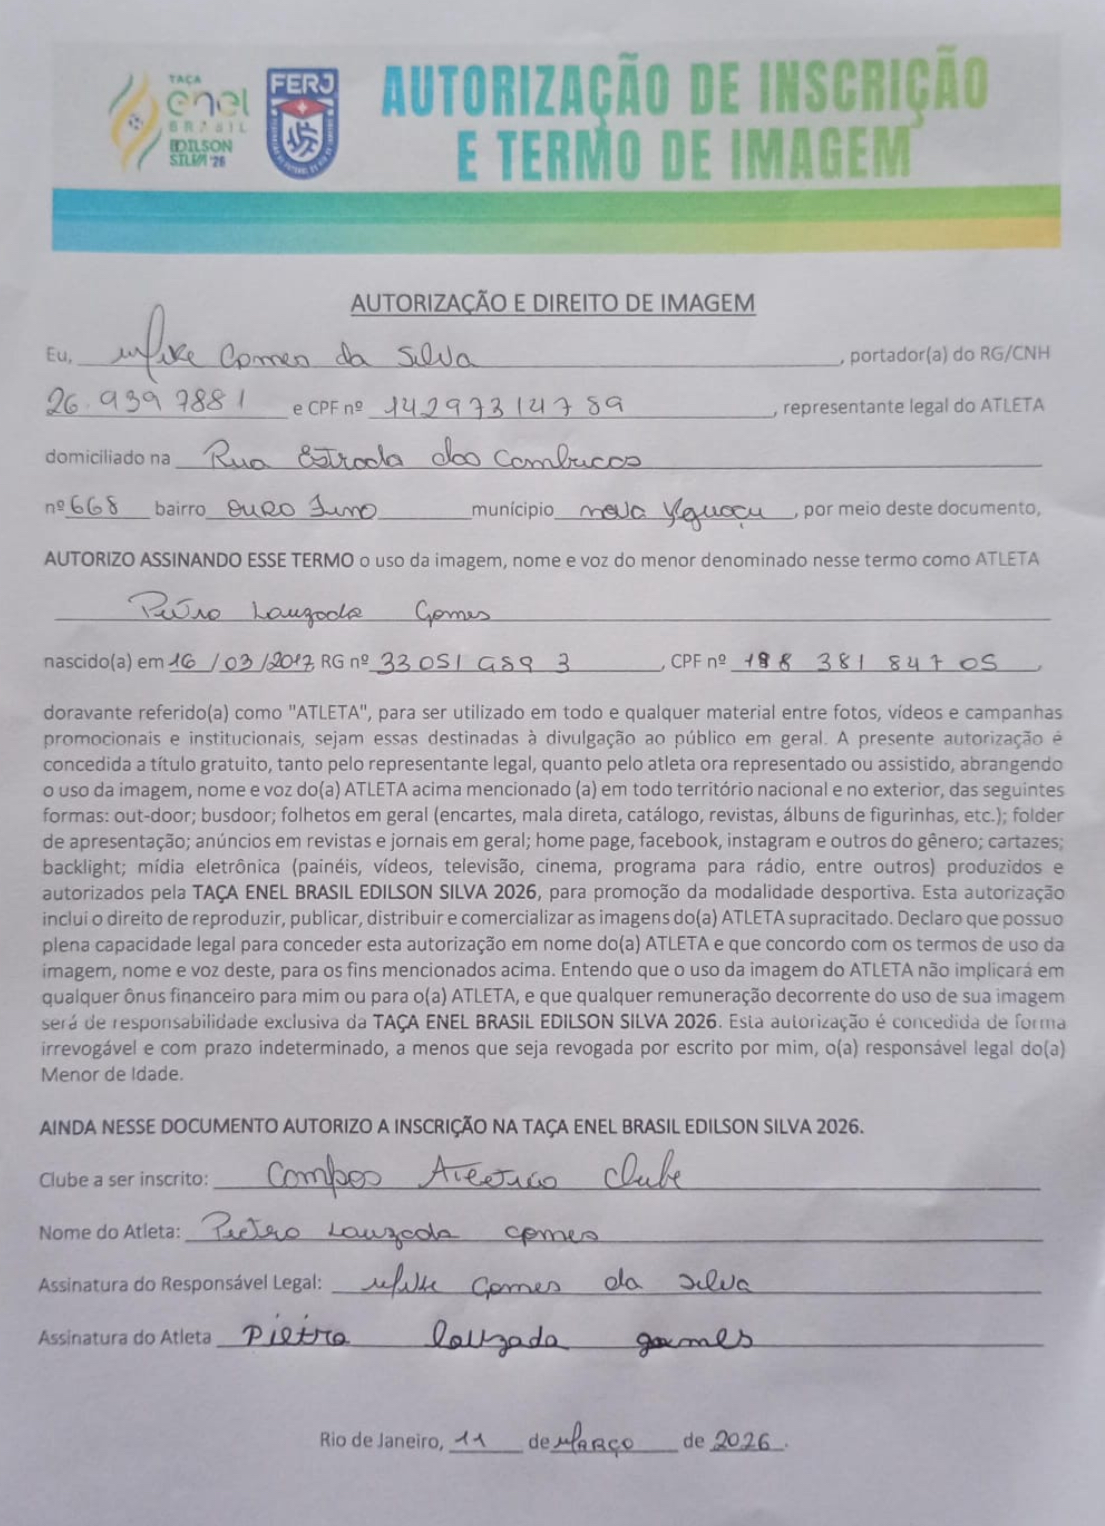 TAÇA
enel
BRASIL
EDILSON
SILVA '26
FERJ
AUTORIZAÇÃO DE INSCRIÇÃO
E TERMO DE IMAGEM
AUTORIZAÇÃO E DIREITO DE IMAGEM
Eu, Mike Gomes da Silva, portador(a) do RG/CNH
26.939 7881 e CPF nº 14297314789, representante legal do ATLETA
domiciliado na Rua Estrada dos Cambucas
nº 668 bairro Ouro Fino município Nova Yguaçu, por meio deste documento,
AUTORIZO ASSINANDO ESSE TERMO o uso da imagem, nome e voz do menor denominado nesse termo como ATLETA
Pietro Lauzada Gomes
nascido(a) em 16/03/2017 RG nº 33051989 3, CPF nº 188 381 847 05,
doravante referido(a) como "ATLETA", para ser utilizado em todo e qualquer material entre fotos, vídeos e campanhas
promocionais e institucionais, sejam essas destinadas à divulgação ao público em geral. A presente autorização é
concedida a título gratuito, tanto pelo representante legal, quanto pelo atleta ora representado ou assistido, abrangendo
o uso da imagem, nome e voz do(a) ATLETA acima mencionado (a) em todo território nacional e no exterior, das seguintes
formas: out-door; busdoor; folhetos em geral (encartes, mala direta, catálogo, revistas, álbuns de figurinhas, etc.); folder
de apresentação; anúncios em revistas e jornais em geral; home page, facebook, instagram e outros do gênero; cartazes;
backlight; mídia eletrônica (painéis, vídeos, televisão, cinema, programa para rádio, entre outros) produzidos e
autorizados pela TAÇA ENEL BRASIL EDILSON SILVA 2026, para promoção da modalidade desportiva. Esta autorização
inclui o direito de reproduzir, publicar, distribuir e comercializar as imagens do(a) ATLETA supracitado. Declaro que possuo
plena capacidade legal para conceder esta autorização em nome do(a) ATLETA e que concordo com os termos de uso da
imagem, nome e voz deste, para os fins mencionados acima. Entendo que o uso da imagem do ATLETA não implicará em
qualquer ônus financeiro para mim ou para o(a) ATLETA, e que qualquer remuneração decorrente do uso de sua imagem
será de responsabilidade exclusiva da TAÇA ENEL BRASIL EDILSON SILVA 2026. Esta autorização é concedida de forma
irrevogável e com prazo indeterminado, a menos que seja revogada por escrito por mim, o(a) responsável legal do(a)
Menor de Idade.
AINDA NESSE DOCUMENTO AUTORIZO A INSCRIÇÃO NA TAÇA ENEL BRASIL EDILSON SILVA 2026.
Clube a ser inscrito: Campos Atletico Clube
Nome do Atleta: Pietro Lauzada Gomes
Assinatura do Responsável Legal: Mike Gomes da Silva
Assinatura do Atleta Pietro lauzada gomes
Rio de Janeiro, 11 de Março de 2026.